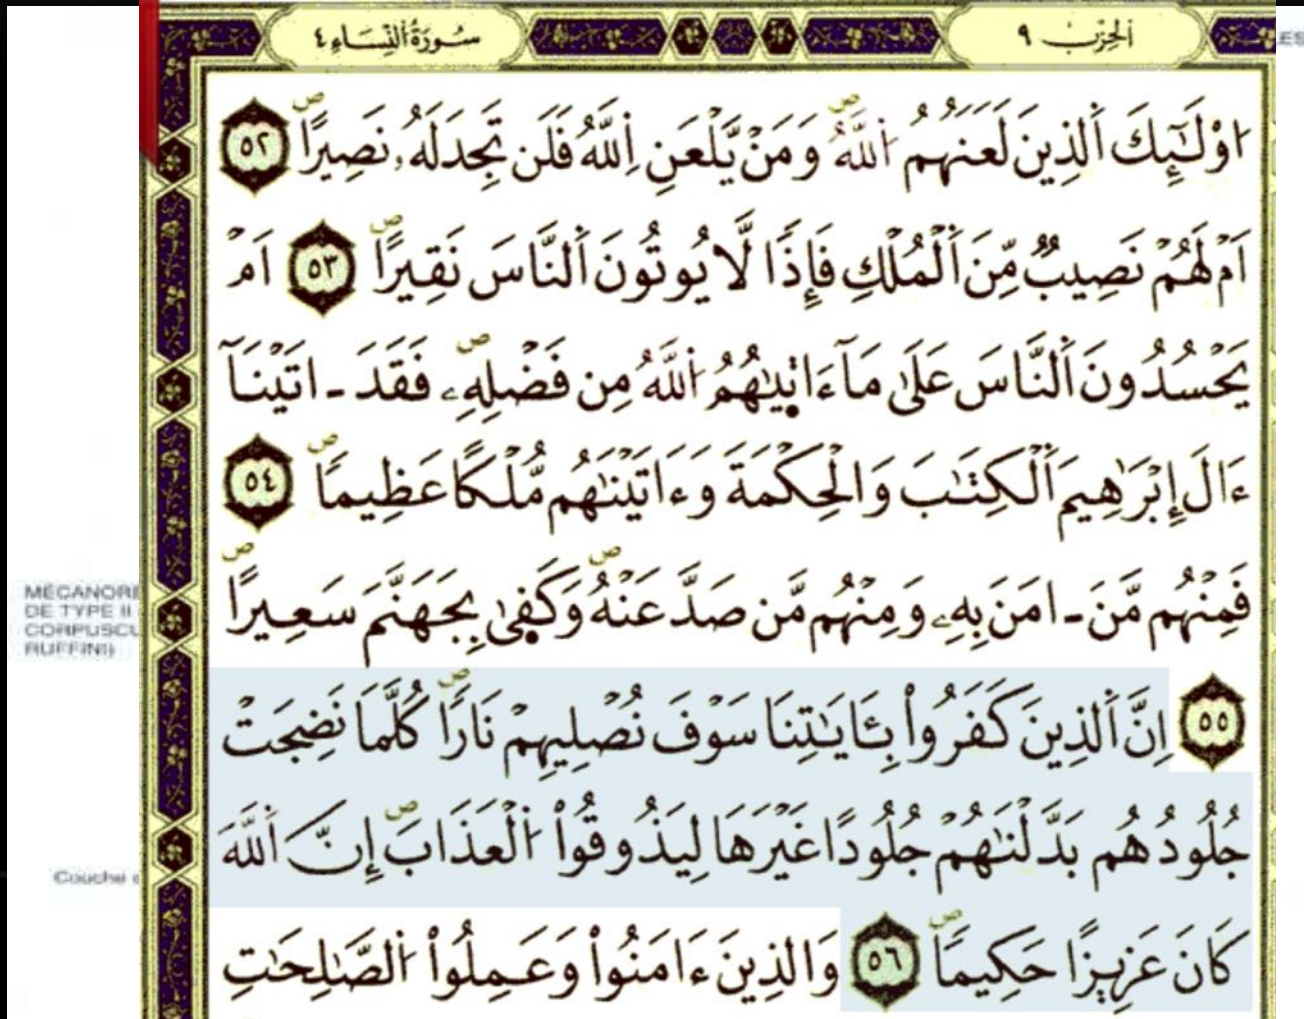 سُورَةُ النِّسَاءِ ٤
الحِزْبُ ٩
اُوْلَٰٓئِكَ اَ۬لذِينَ لَعَنَهُمُ اُ۬للَّهُۖ وَمَنْ يَّلْعَنِ اِ۬للَّهُ فَلَن تَجِدَ لَهُۥ نَصِيراًۖ ٥٢
اَمْ لَهُمْ نَصِيبٞ مِّنَ اَ۬لْمُلْكِ فَإِذاٗ لَّا يُوتُونَ اَ۬لنَّاسَ نَقِيراًۖ ٥٣ اَمْ
يَحْسُدُونَ اَ۬لنَّاسَ عَلَىٰ مَآ ءَاتٜيٰهُمُ اُ۬للَّهُ مِن فَضْلِهِۦۖ فَقَدَ ـ اتَيْنَآ
ءَالَ إِبْرَٰهِيمَ اَ۬لْكِتَٰبَ وَالْحِكْمَةَ وَءَاتَيْنَٰهُم مُّلْكاً عَظِيماًۖ ٥٤
فَمِنْهُم مَّنَ ـ امَنَ بِهِۦ وَمِنْهُم مَّن صَدَّ عَنْهُۖ وَكَفٜىٰ بِجَهَنَّمَ سَعِيراًۖ
٥٥ اِنَّ اَ۬لذِينَ كَفَرُواْ بِـَٔايَٰتِنَا سَوْفَ نُصْلِيهِمْ نَاراٗۖ كُلَّمَا نَضِجَتْ
جُلُودُهُم بَدَّلْنَٰهُمْ جُلُوداً غَيْرَهَا لِيَذُوقُواْ اُ۬لْعَذَابَۖ إِنَّ اَ۬للَّهَ
كَانَ عَزِيزاً حَكِيماٗۖ ٥٦ وَالذِينَ ءَامَنُواْ وَعَمِلُواْ اُ۬لصَّٰلِحَٰتِ
DE TYPE II
Couche